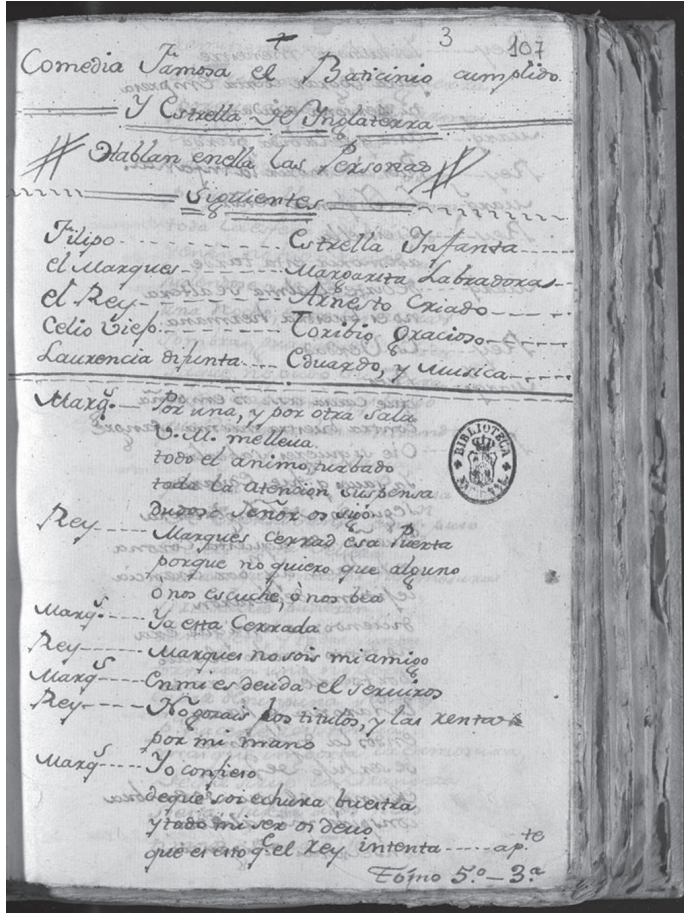 3 107
Comedia Famosa el Baticinio cumplido
Y Estrella de Inglaterra
Hablan enella Las Personas
Siguientes
Filipo Estrella Infanta
el Marques Margarita Labradoras
el Rey Arnesto Criado
Celio Viejo Toribio Gracioso
Laurencia difunta Eduardo, y Musica
Marq.s Por una, y por otra sala
V. M. melleua
todo el animo turbado
toda la atencion suspensa
Dudoso Señor os sigo
Rey Marques cerrad esa Puerta
porque no quiero que alguno
o nos escuche, ò nos bea
Marq.s Ya esta Cerrada
Rey Marques no sois mi amigo
Marq.s En mi es deuda el seruiros
Rey No gozais los titulos, y las rentas
por mi mano
Marq.s Yo confieso
deque soi echura buestra
y todo mi ser os deuo
que es esto q.e el Rey intenta ap.te
Tomo 5.º - 3.ª
BIBLIOTECA NACIONAL